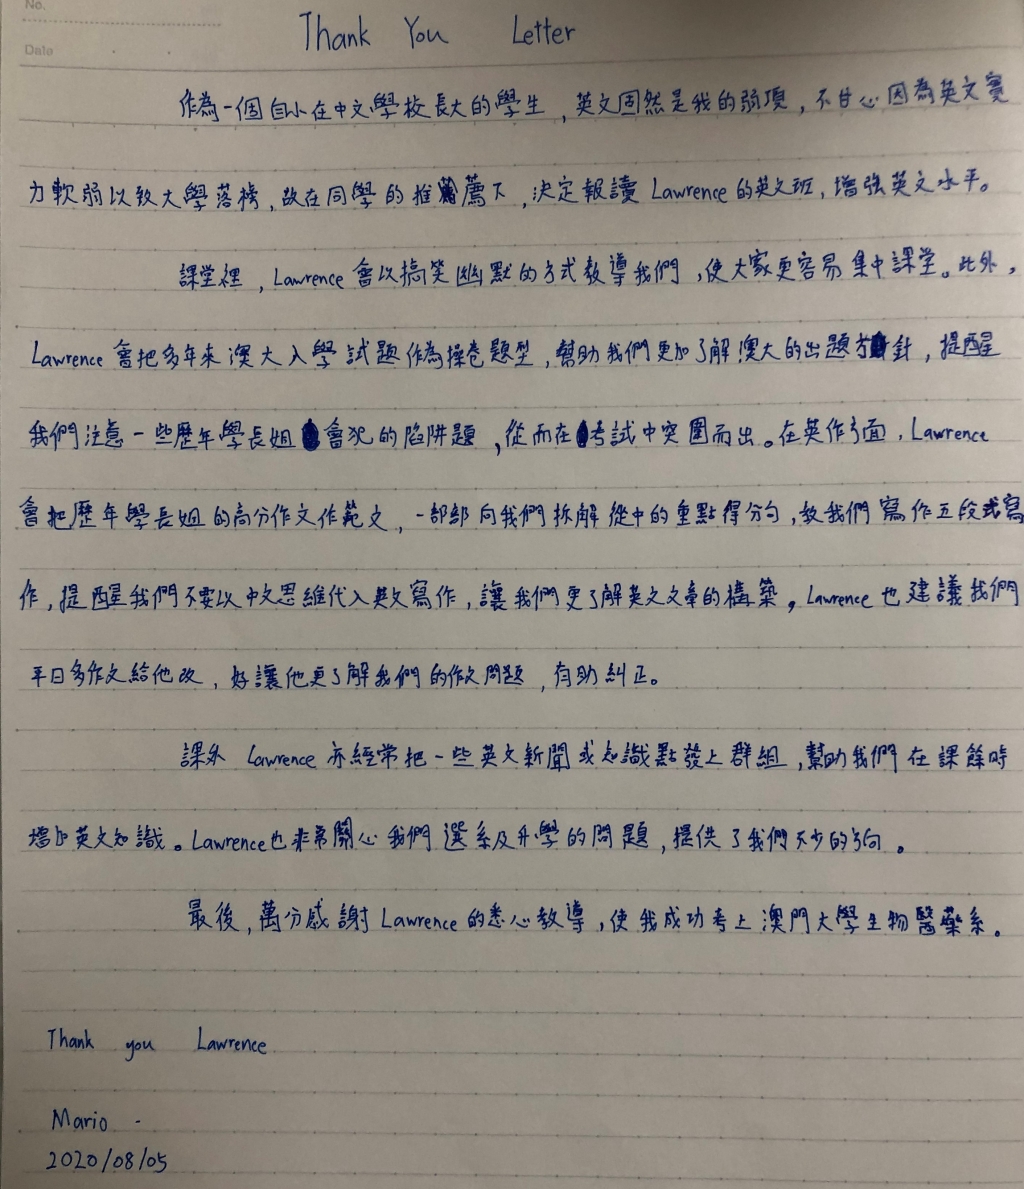 No.
Date
Thank You Letter
作為一個自小在中文學校長大的學生，英文固然是我的弱項，不甘心因為英文實
力軟弱以致大學落榜，故在同學的推薦下，決定報讀Lawrence的英文班，增強英文水平。
課堂裡，Lawrence會以搞笑幽默的方式教導我們，使大家更容易集中課堂。此外，
Lawrence會把多年來澳大入學試題作為操卷題型，幫助我們更加了解澳大的出題方針，提醒
我們注意一些歷年學長姐會犯的陷阱題，從而在考試中突圍而出。在英作方面，Lawrence
會把歷年學長姐的高分作文作範文，一部部向我們拆解從中的重點得分句，教我們寫作五段式寫
作，提醒我們不要以中文思維代入英文寫作，讓我們更了解英文文章的構築。Lawrence也建議我們
平日多作文給他改，好讓他更了解我們的作文問題，有助糾正。
課外Lawrence亦經常把一些英文新聞或知識點發上群組，幫助我們在課餘時
增加英文知識。Lawrence也非常關心我們選系及升學的問題，提供了我們不少的方向。
最後，萬分感謝Lawrence的悉心教導，使我成功考上澳門大學生物醫藥系。
Thank you Lawrence
Mario
2020/08/05